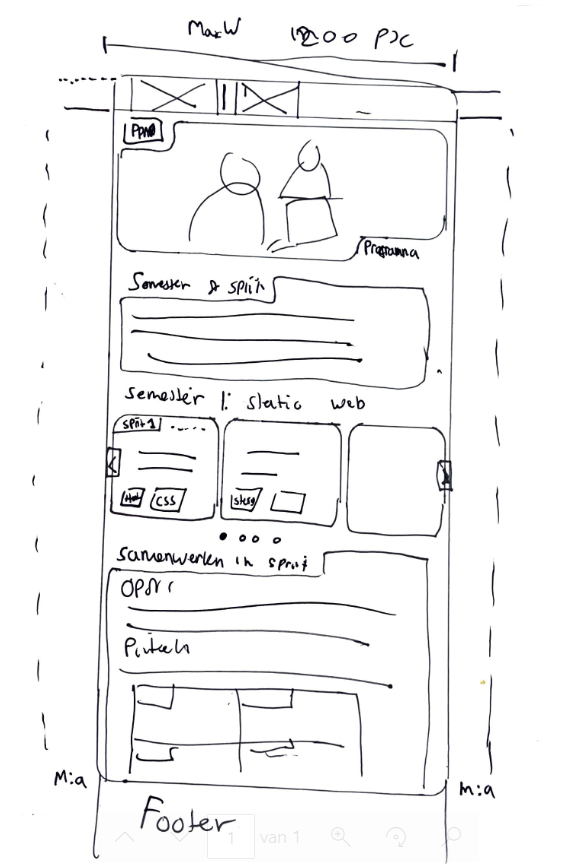 MaxW 1200 px
Programma
Semester & sprint
semester 1: static web
sprint 1
CSS
Samenwerken in sprint
M:a
M:a
Footer
1 van 1